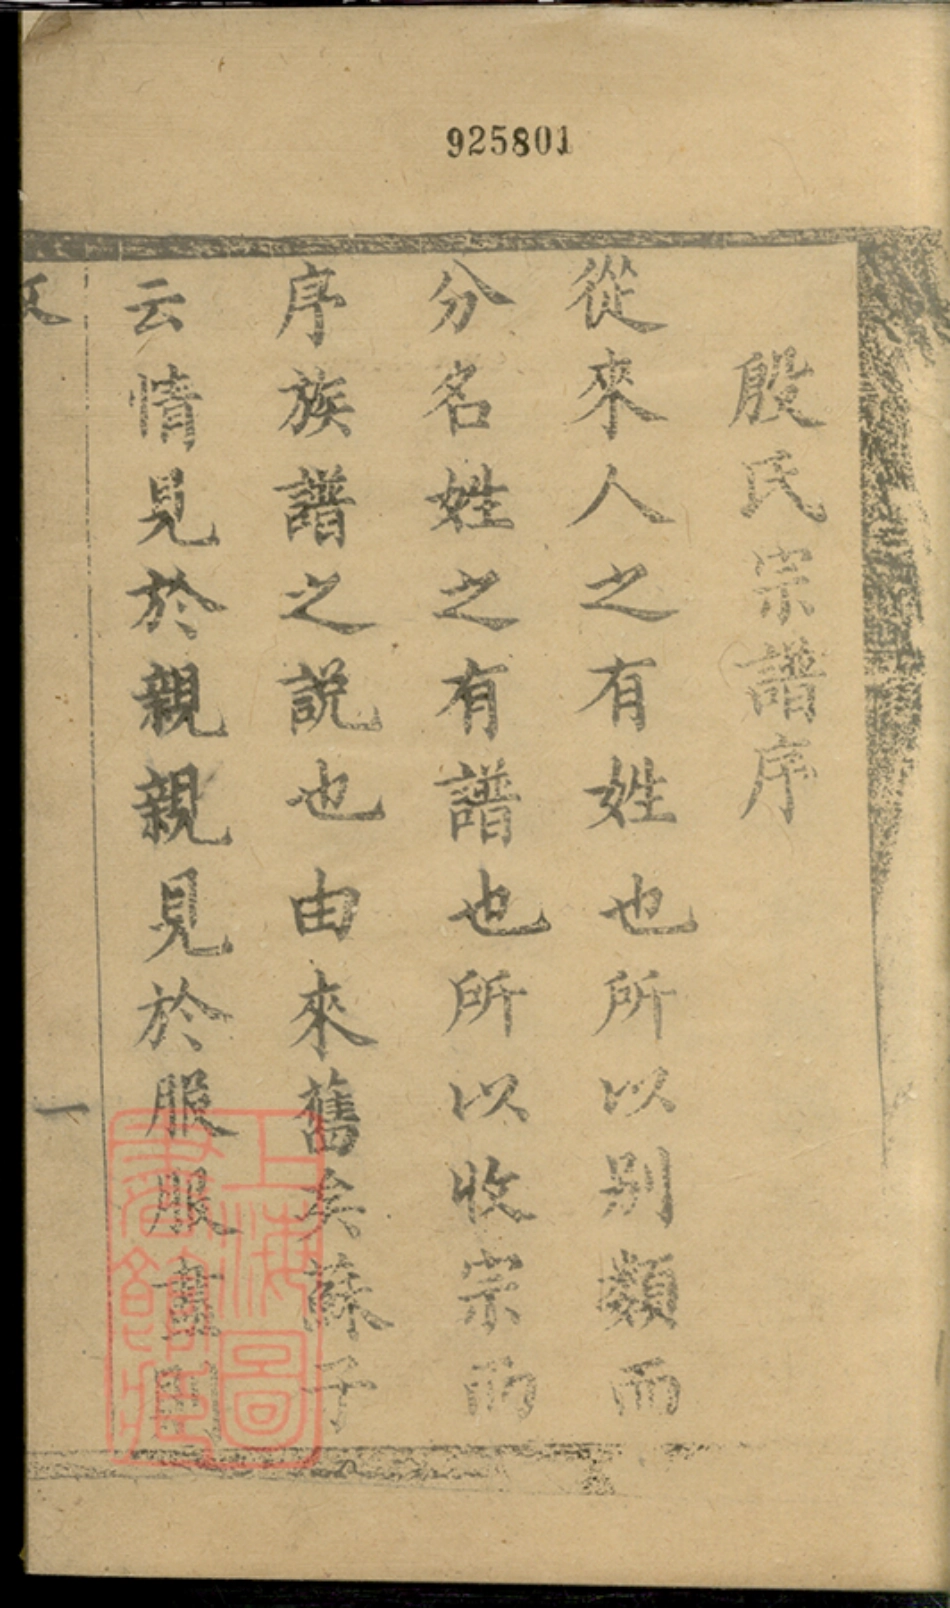 925801
殷氏宗譜序
從來人之有姓也所以别類而
分名姓之有譜也所以收宗而
序族譜之説也由來舊矣蘇子
云情見於親親見於服服盡則
一
上海圖
書館藏